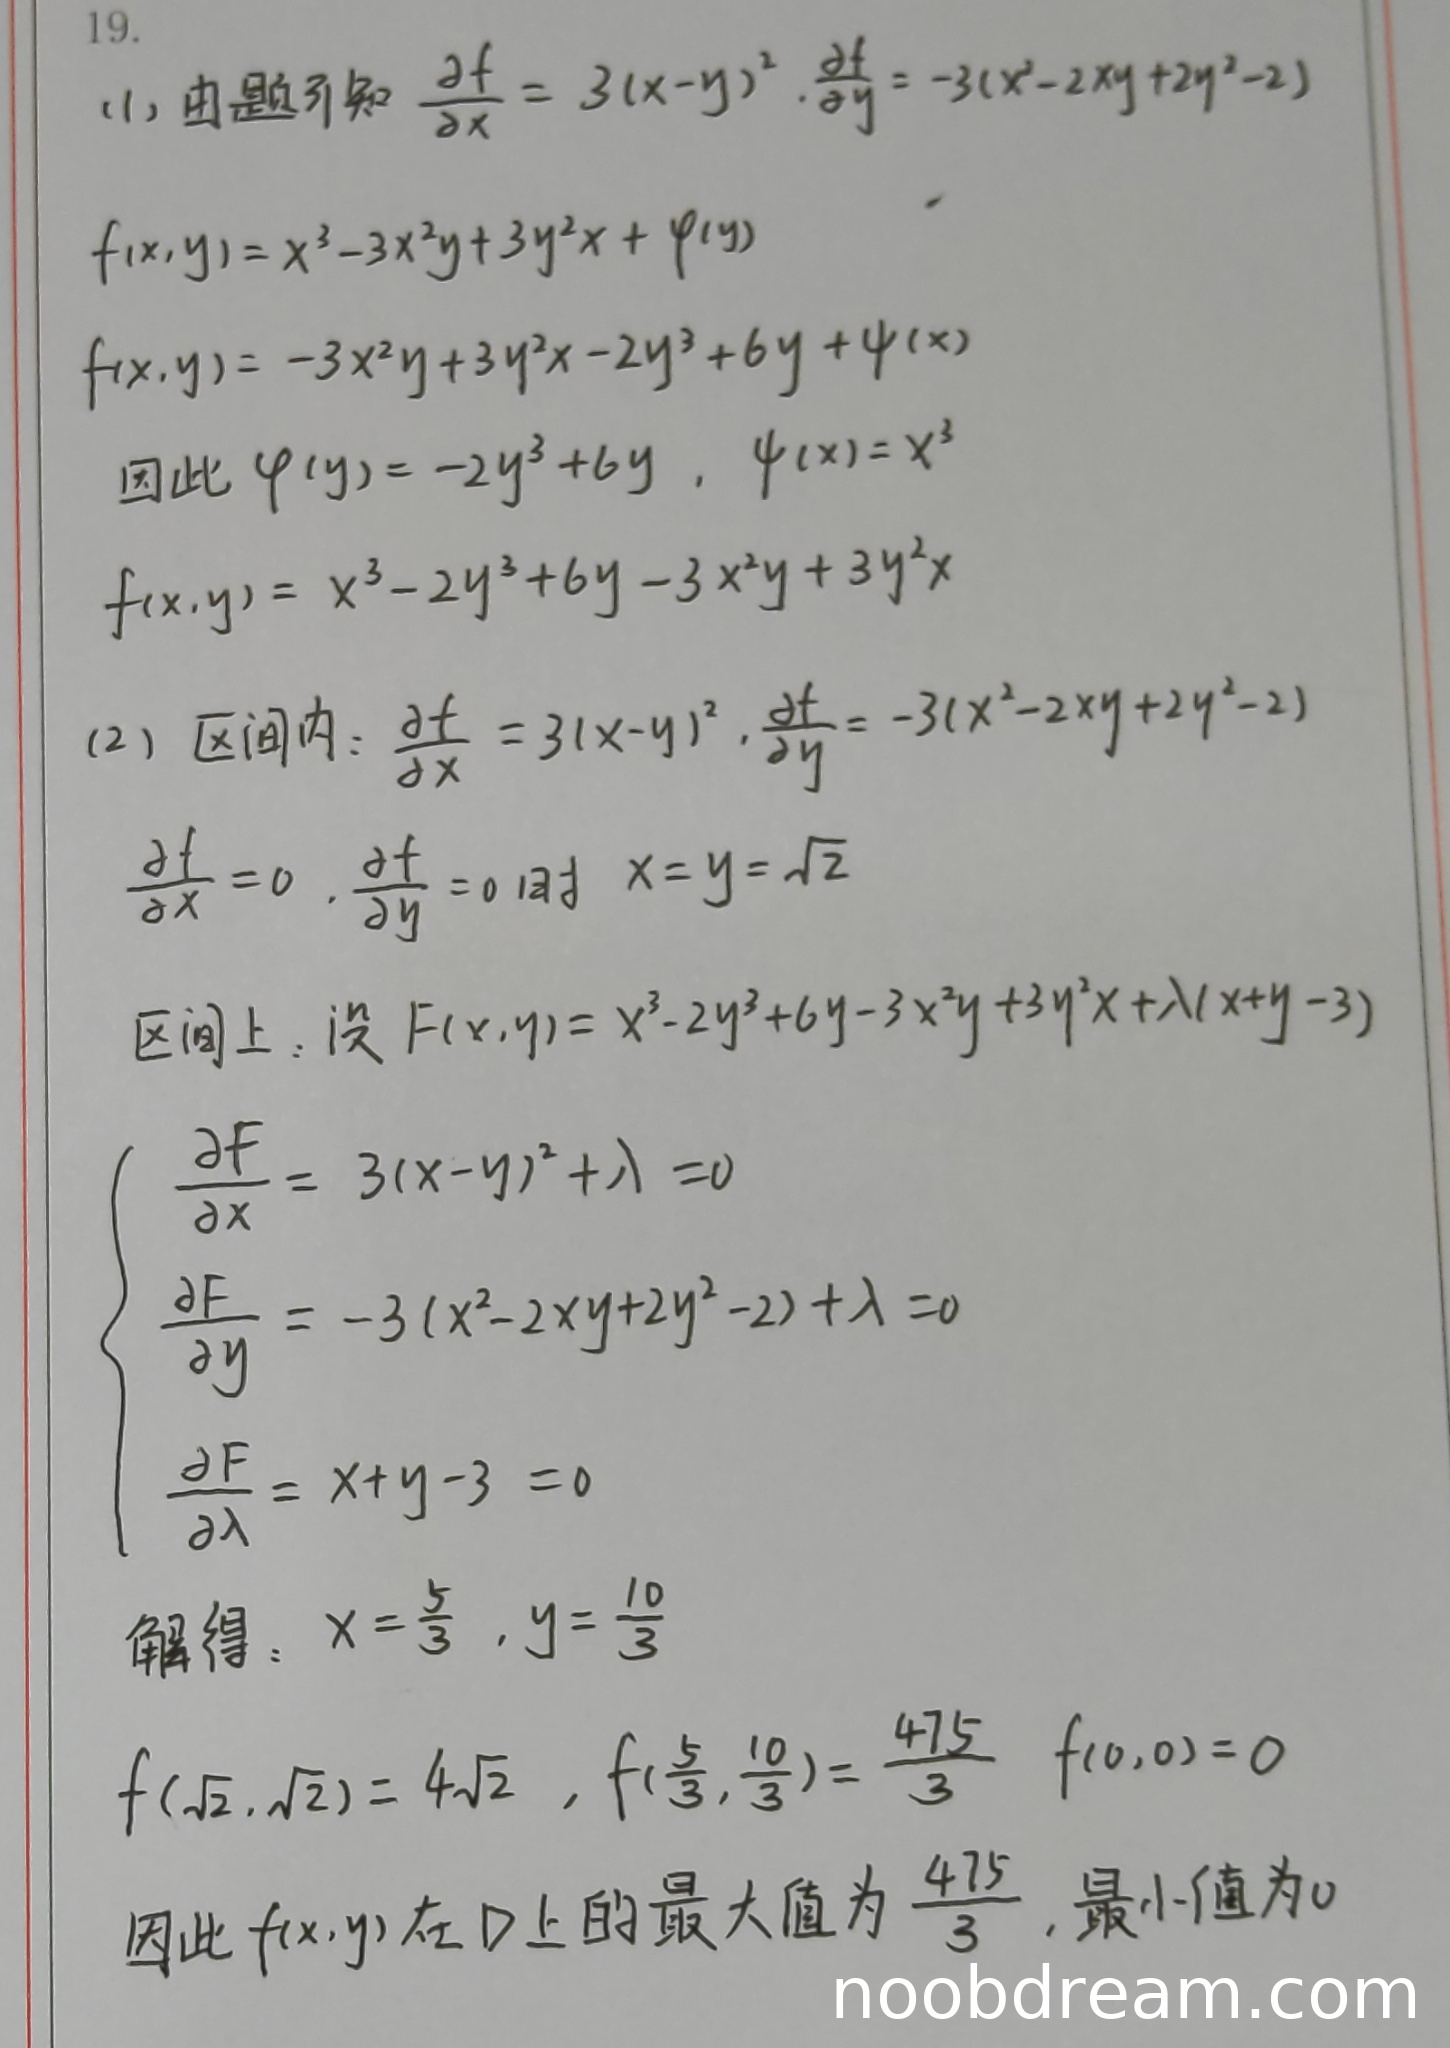 19.
(1) 由题可知 ∂f/∂x = 3(x-y)² . ∂f/∂y = -3(x²-2xy+2y²-2)
f(x,y) = x³-3x²y+3y²x+φ(y)
f(x,y) = -3x²y+3y²x-2y³+6y+ψ(x)
因此 φ(y) = -2y³+6y , ψ(x) = x³
f(x,y) = x³-2y³+6y-3x²y+3y²x
(2) 区间内: ∂f/∂x = 3(x-y)² , ∂f/∂y = -3(x²-2xy+2y²-2)
∂f/∂x = 0 . ∂f/∂y = 0 时 x = y = √2
区间上: 设 F(x,y) = x³-2y³+6y-3x²y+3y²x+λ(x+y-3)
∂F/∂x = 3(x-y)²+λ = 0
∂F/∂y = -3(x²-2xy+2y²-2)+λ = 0
∂F/∂λ = x+y-3 = 0
解得: x = 5/3 , y = 10/3
f(√2,√2) = 4√2 , f(5/3,10/3) = 475/3 f(0,0) = 0
因此 f(x,y) 在 D 上的最大值为 475/3 , 最小值为0
noobdream.com